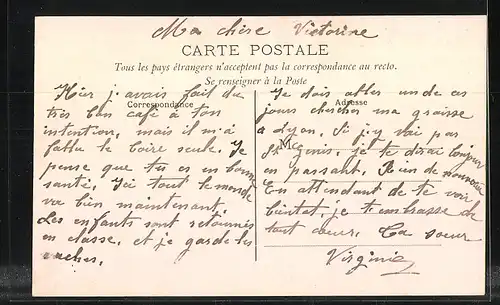 Ma chère Victorine
CARTE POSTALE
Tous les pays étrangers n'acceptent pas la correspondance au recto.
Se renseigner à la Poste
Correspondance
Hier j'avais fait du
très bon café à ton
intention, mais il m'a
fallu le boire seule. Je
pense que tu es en bonne
santé. Ici tout le monde
va bien maintenant.
Les enfants sont retournés
en classe, et je garde les
vaches.
Adresse
Je dois aller un de ces
jours chercher ma graisse
a Lyon. Si j'y vai par
M
St Genis, je te dirai bonjour
en passant. Rien de nouveau
En attendant de te voir
bientôt, je t'embrasse de
tout coeur. Ta soeur
Virginie